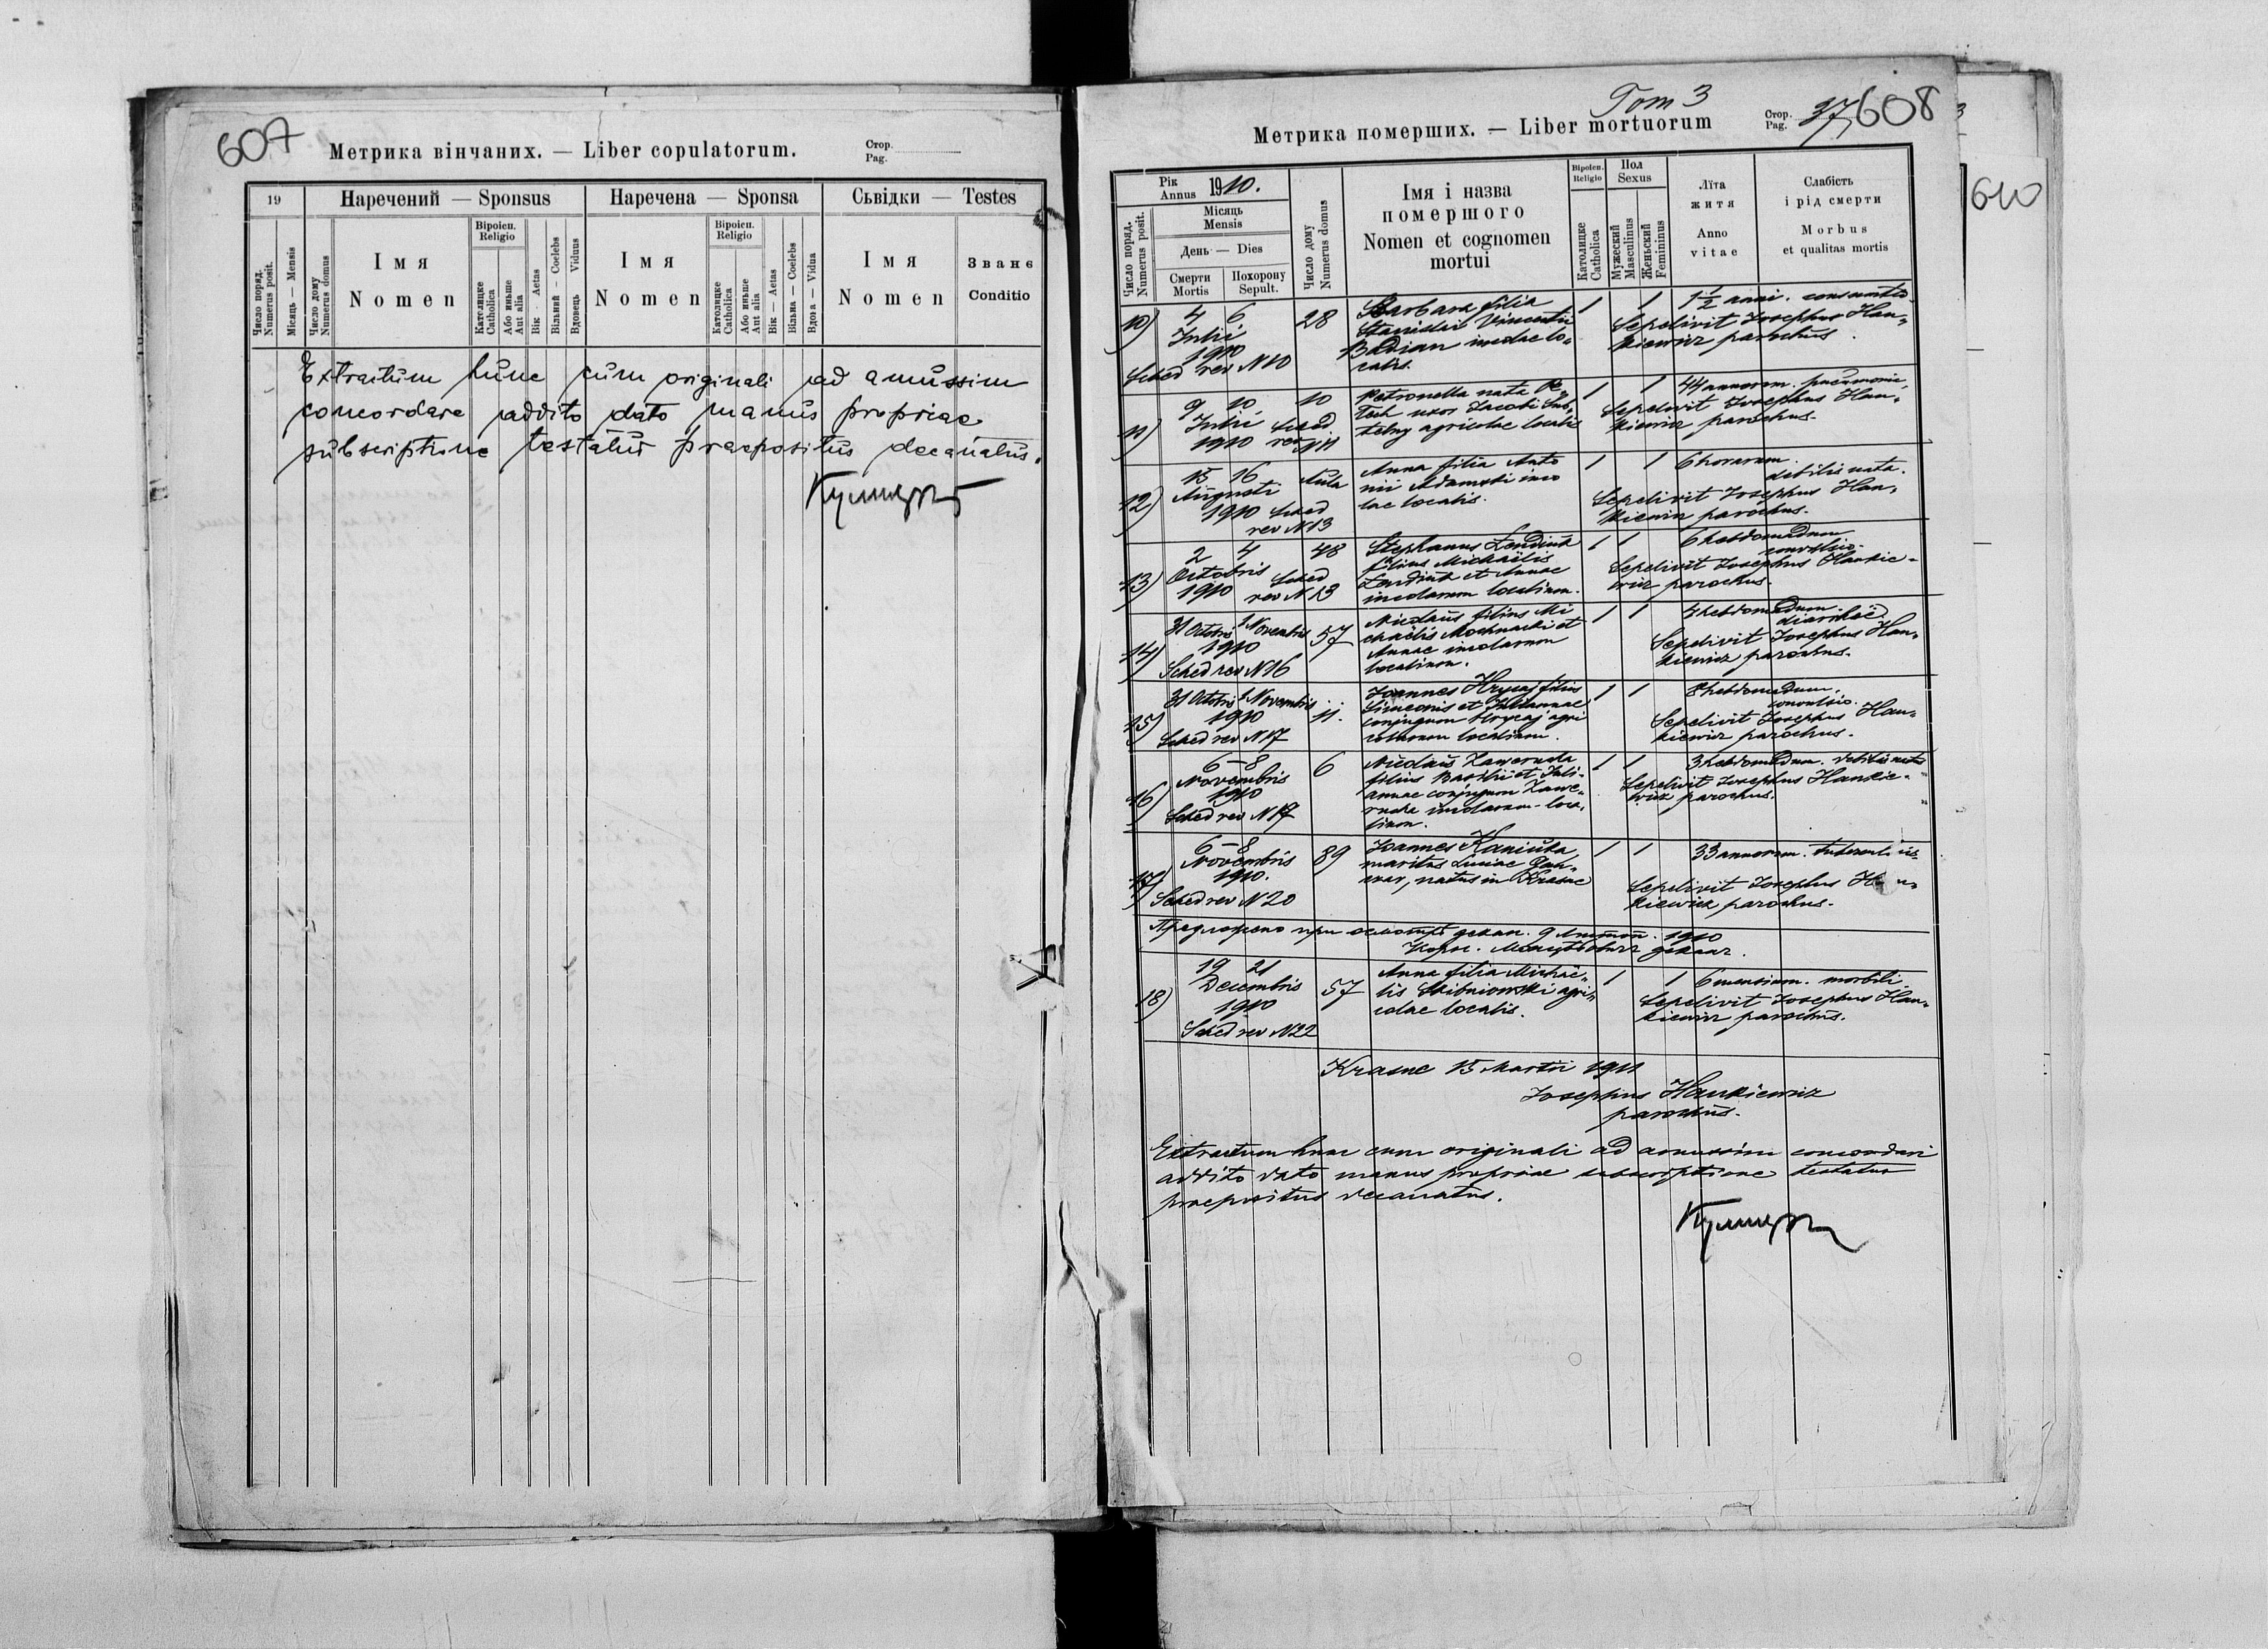 607
Метрика вінчаних. — Liber copulatorum.
Стор.
Pag.
19
Наречений — Sponsus
Наречена — Sponsa
Сьвідки — Testes
Число поряд.
Numerus posit.
Місяць — Mensis
Число дому
Numerus domus
Імя
Nomen
Віроісп.
Religio
Католицке
Catholica
Або иньше
Aut alia
Вік — Aetas
Вільний — Coelebs
Вдовець Viduus
Імя
Nomen
Віроісп.
Religio
Католицке
Catholica
Або иньше
Aut alia
Вік — Aetas
Вільна — Coelebs
Вдова — Vidua
Імя
Nomen
Званє
Conditio
Extractum hunc cum originali ad amussim
concordare addito dato manus propriae
subscriptione testatur praepositus decanatus.
Том 3
Метрика померших. — Liber mortuorum
Стор.
Pag.
37
608
610
Рік
Annus 1910.
Місяць
Mensis
День — Dies
Число поряд.
Numerus posit.
Смерти
Mortis
Похорону
Sepult.
Число дому
Numerus domus
Імя і назва
помершого
Nomen et cognomen
mortui
Віроісп.
Religio
Католицке
Catholica
Пол
Sexus
Мужеский
Masculinus
Женьский
Femininus
Лїта
житя
Anno
vitae
Слабість
і рід смерти
Morbus
et qualitas mortis
10) 4 6 28 Barbara filia 1 1 1½ anni.
Julii Stanislai Vincentii Sepelivit Josephus Han„
1910 Badian incolae lo„ kiewicz parochus.
Sched rev N 10 calis.
11) 9 10 10 Petronella nata 1 1 44 annorum. pneumonia,
Julii Sched uxor Jacobi Sepelivit Josephus Han„
1910 rev N 11 agricolae localis kiewicz parochus.
12) 15 16 Aula Anna filia Anto 1 1 6 horarum.
Augusti nii Adamski inco debilis nata.
1910 Sched lae localis. Sepelivit Josephus Han„
rev N 13 kiewicz parochus.
13) 2 4 48 Stephanus Lendiuk 1 1 6 hebdomadum
Octobris filius Michaelis convulsio.
1910 Sched Lendiuk et Annae Sepelivit Josephus Hankie-
rev N 13 incolarum localium. wicz parochus.
14) 31 Octobris 1 Novembris 57 Nicolaus filius Mi 1 1 4 hebdomadum.
1910 chaëlis Mochnacki et diarrhöe
Sched rev N 16 Annae incolarum Sepelivit Josephus Han„
localium. kiewicz parochus.
15) 31 Octobris 1 Novembris 11. Joannes Hrycaj filius 1 1 8 hebdomadum.
1910 Simeonis et Juliannae convulsio.
Sched rev N 17 conjugum Hrycaj agri Sepelivit Josephus Han„
colarum localium. kiewicz parochus.
16) 6–8 6 Nicolaus Zaweruda 1 1 3 hebdomadum. debilis nata
Novembris filius Basilii et Juli- Sepelivit Josephus Hankie-
1910 annae conjugum Zawe„ wicz parochus.
Sched rev N 19 rucha incolarum loca„
lium.
17) 6–8 89 Joannes Kaniuka 1 1 33 annorum.
Novembris maritus Luciae
1910. natus in Krasne Sepelivit Josephus
Sched rev N 20 kiewicz parochus.
Предложено при осмотрѣ декан. 9 1910
декан.
18) 19 21 57 Anna filia Michaë„ 1 1 6 mensium. morbili
Decembris lis Skibniowski agri„ Sepelivit Josephus Han„
1910 colae localis. kiewicz parochus.
Sched rev N 22
Krasne 15 Martii 1911
Josephus Hankiewicz
parochus.
Extractum hunc cum originali ad amussim concordari
addito dato manus propriae subscriptione testatur
praepositus decanatus.